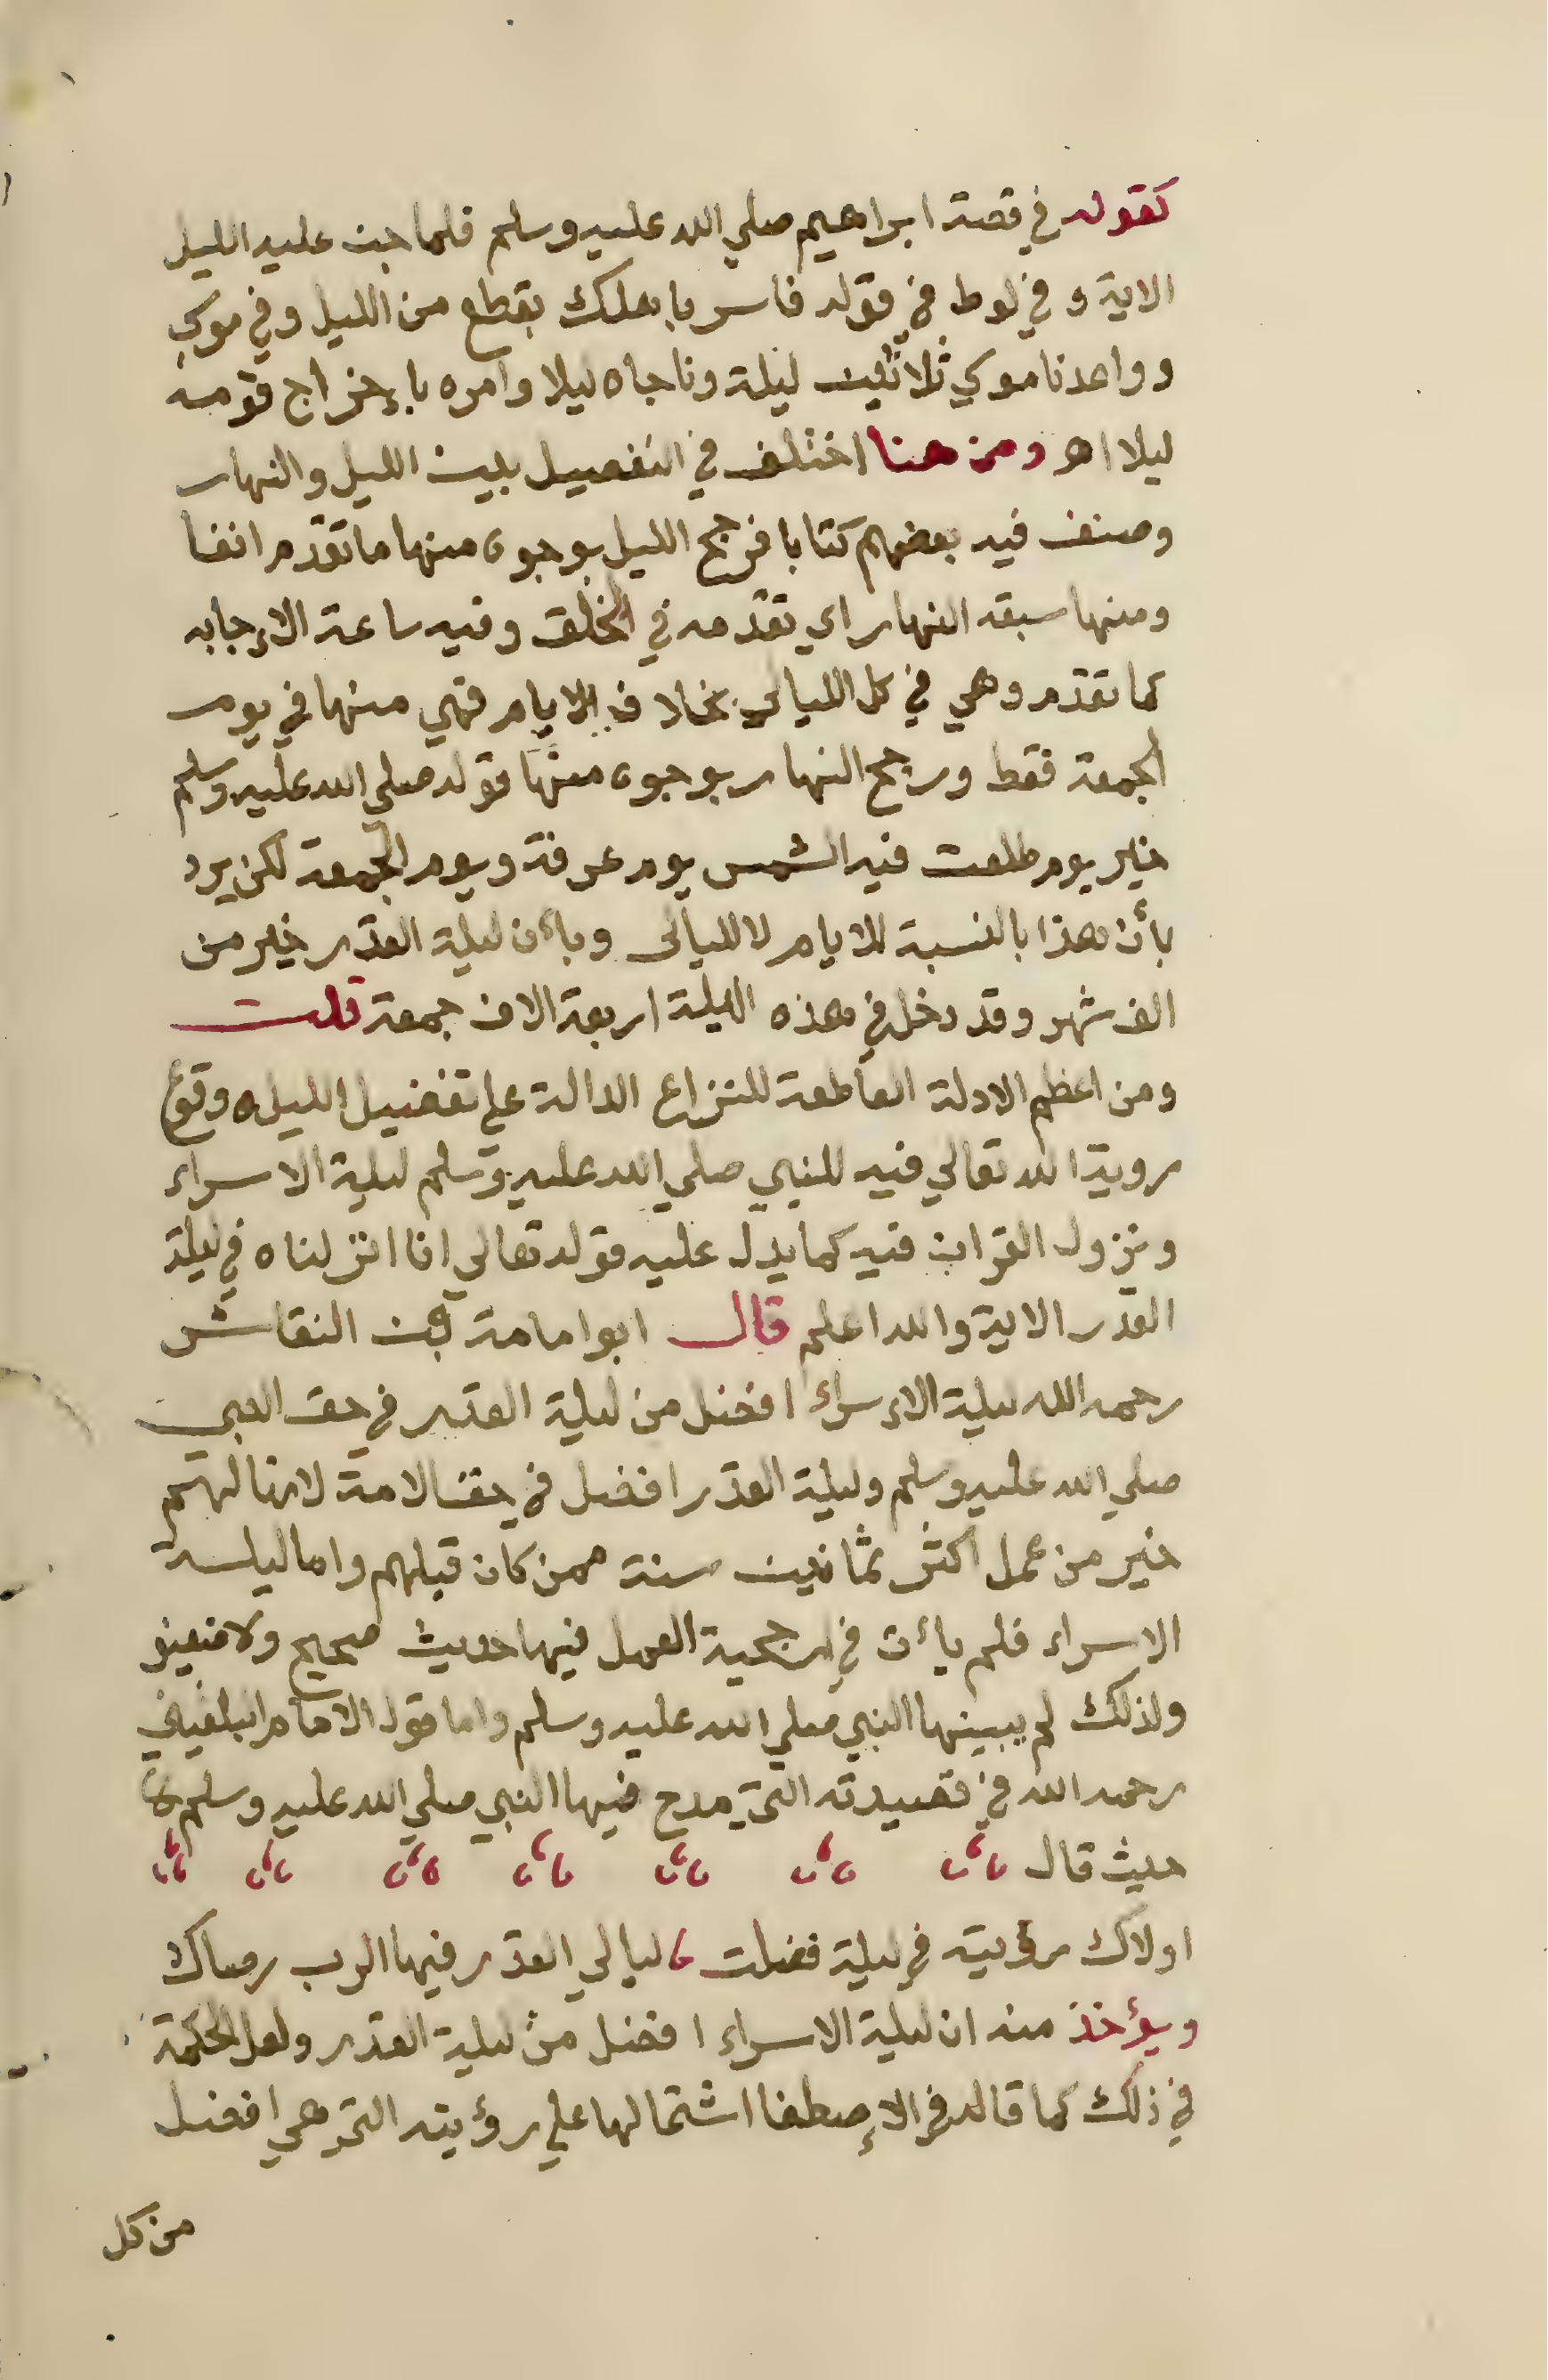 كقوله في قصة ابراهيم صلي الله عليه وسلم فلما جن عليه الليل
الاية و في لوط في قوله فاسر باهلك بقطع من الليل وفي موسي
وواعدنا موسي ثلاثين ليلة وناجاه ليلا وامره بإخراج قومه
ليلا اهـ ومن هنا اختلف في التفصيل بين الليل والنهار
وصنف فيه بعضهم كتابا فرجح الليل بوجوه منها ما تقدم انفا
ومنها سبقه النهار اي تقدمه في الخلق وفيه ساعة الإجابه
كما تقدم وهي في كل الليالي بخلاف الايام فهي منها في يوم
الجمعة فقط ورجح النهار بوجوه منها قوله صلي الله عليه وسلم
خير يوم طلعت فيه الشمس يوم عرفة ويوم الجمعة لكن يرد
بأن هذا بالنسبة للايام لا لليالى وبأن ليلة القدر خير من
الف شهر وقد دخل في هذه الليلة اربعة الاف جمعة قلت
ومن اعظم الادلة القاطعة للنزاع الدالة علي تفضيل الليل وقوع
روية الله تعالي فيه للنبي صلي الله عليه وسلم ليلة الاسراء
ونزول القران فيه كما يدل عليه قوله تعالي انا انزلناه في ليلة
القدر الاية والله اعلم قال ابوامامة بن النقاش
رحمه الله ليلة الإسراء افضل من ليلة القدر في حق النبي
صلي الله عليه وسلم وليلة القدر افضل في حق الامة لانها لهم
خير من عمل اكثر ثمانين سنة ممن كان قبلهم واما ليلة
الاسراء فلم يأت في ارجحية العمل فيها حديث صحيح ولا ضعيف
ولذلك لم يبينها النبي صلي الله عليه وسلم واما قول الامام البلقيني
رحمه الله في قصيدته التي مدح فيها النبي صلي الله عليه وسلم
حيث قال
اولاك رؤيته في ليلة فضلت ليالي القدر فيها الرب رضاك
ويؤخذ منه ان ليلة الاسراء افضل من ليلة القدر ولعل الحكمة
في ذلك كما قاله في الإصطفا اشتمالها علي رؤيته التي هي افضل
من كل